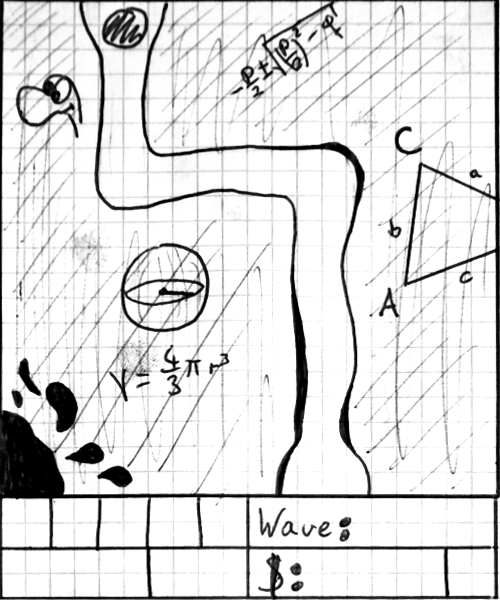 -p/2 ± √(p/2)² - q
C
a
b
c
A
V = 4/3 π r³
Wave:
$: